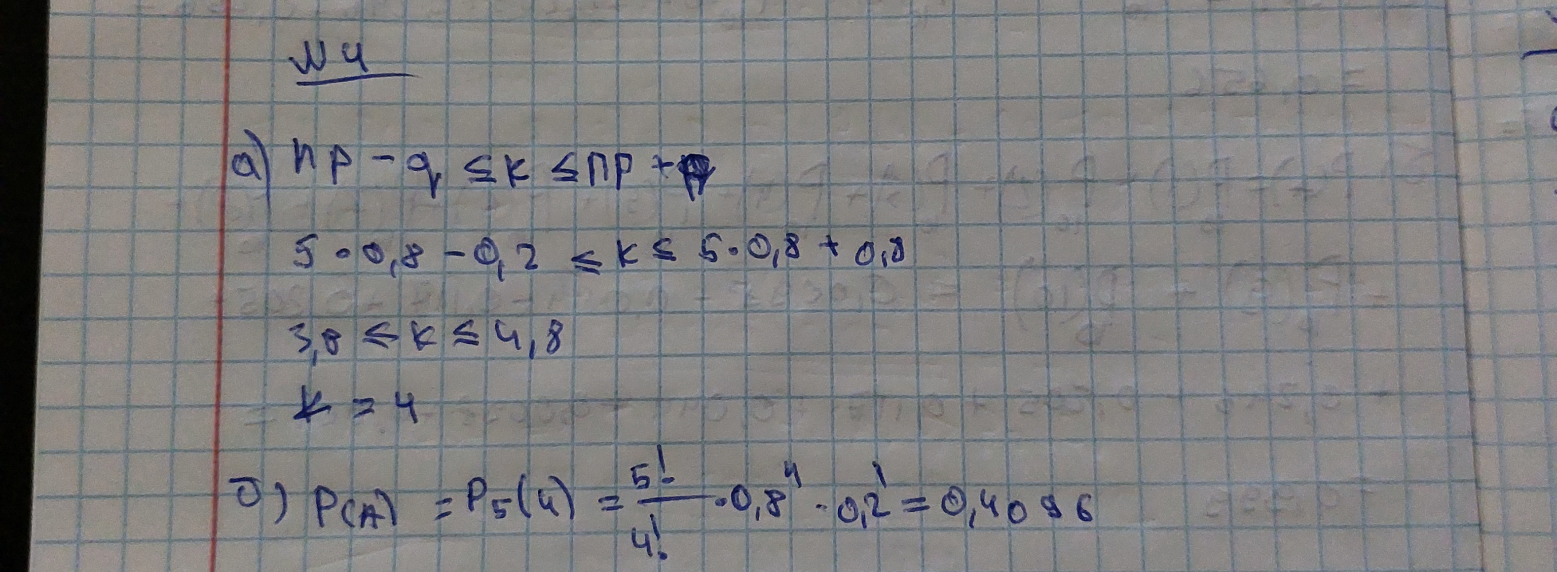 № 4
а) np - q ≤ k ≤ np + p
5 · 0,8 - 0,2 ≤ k ≤ 5 · 0,8 + 0,8
3,8 ≤ k ≤ 4,8
k = 4
б) P(A) = P₅(4) = 5!/4! · 0,8⁴ · 0,2¹ = 0,4096